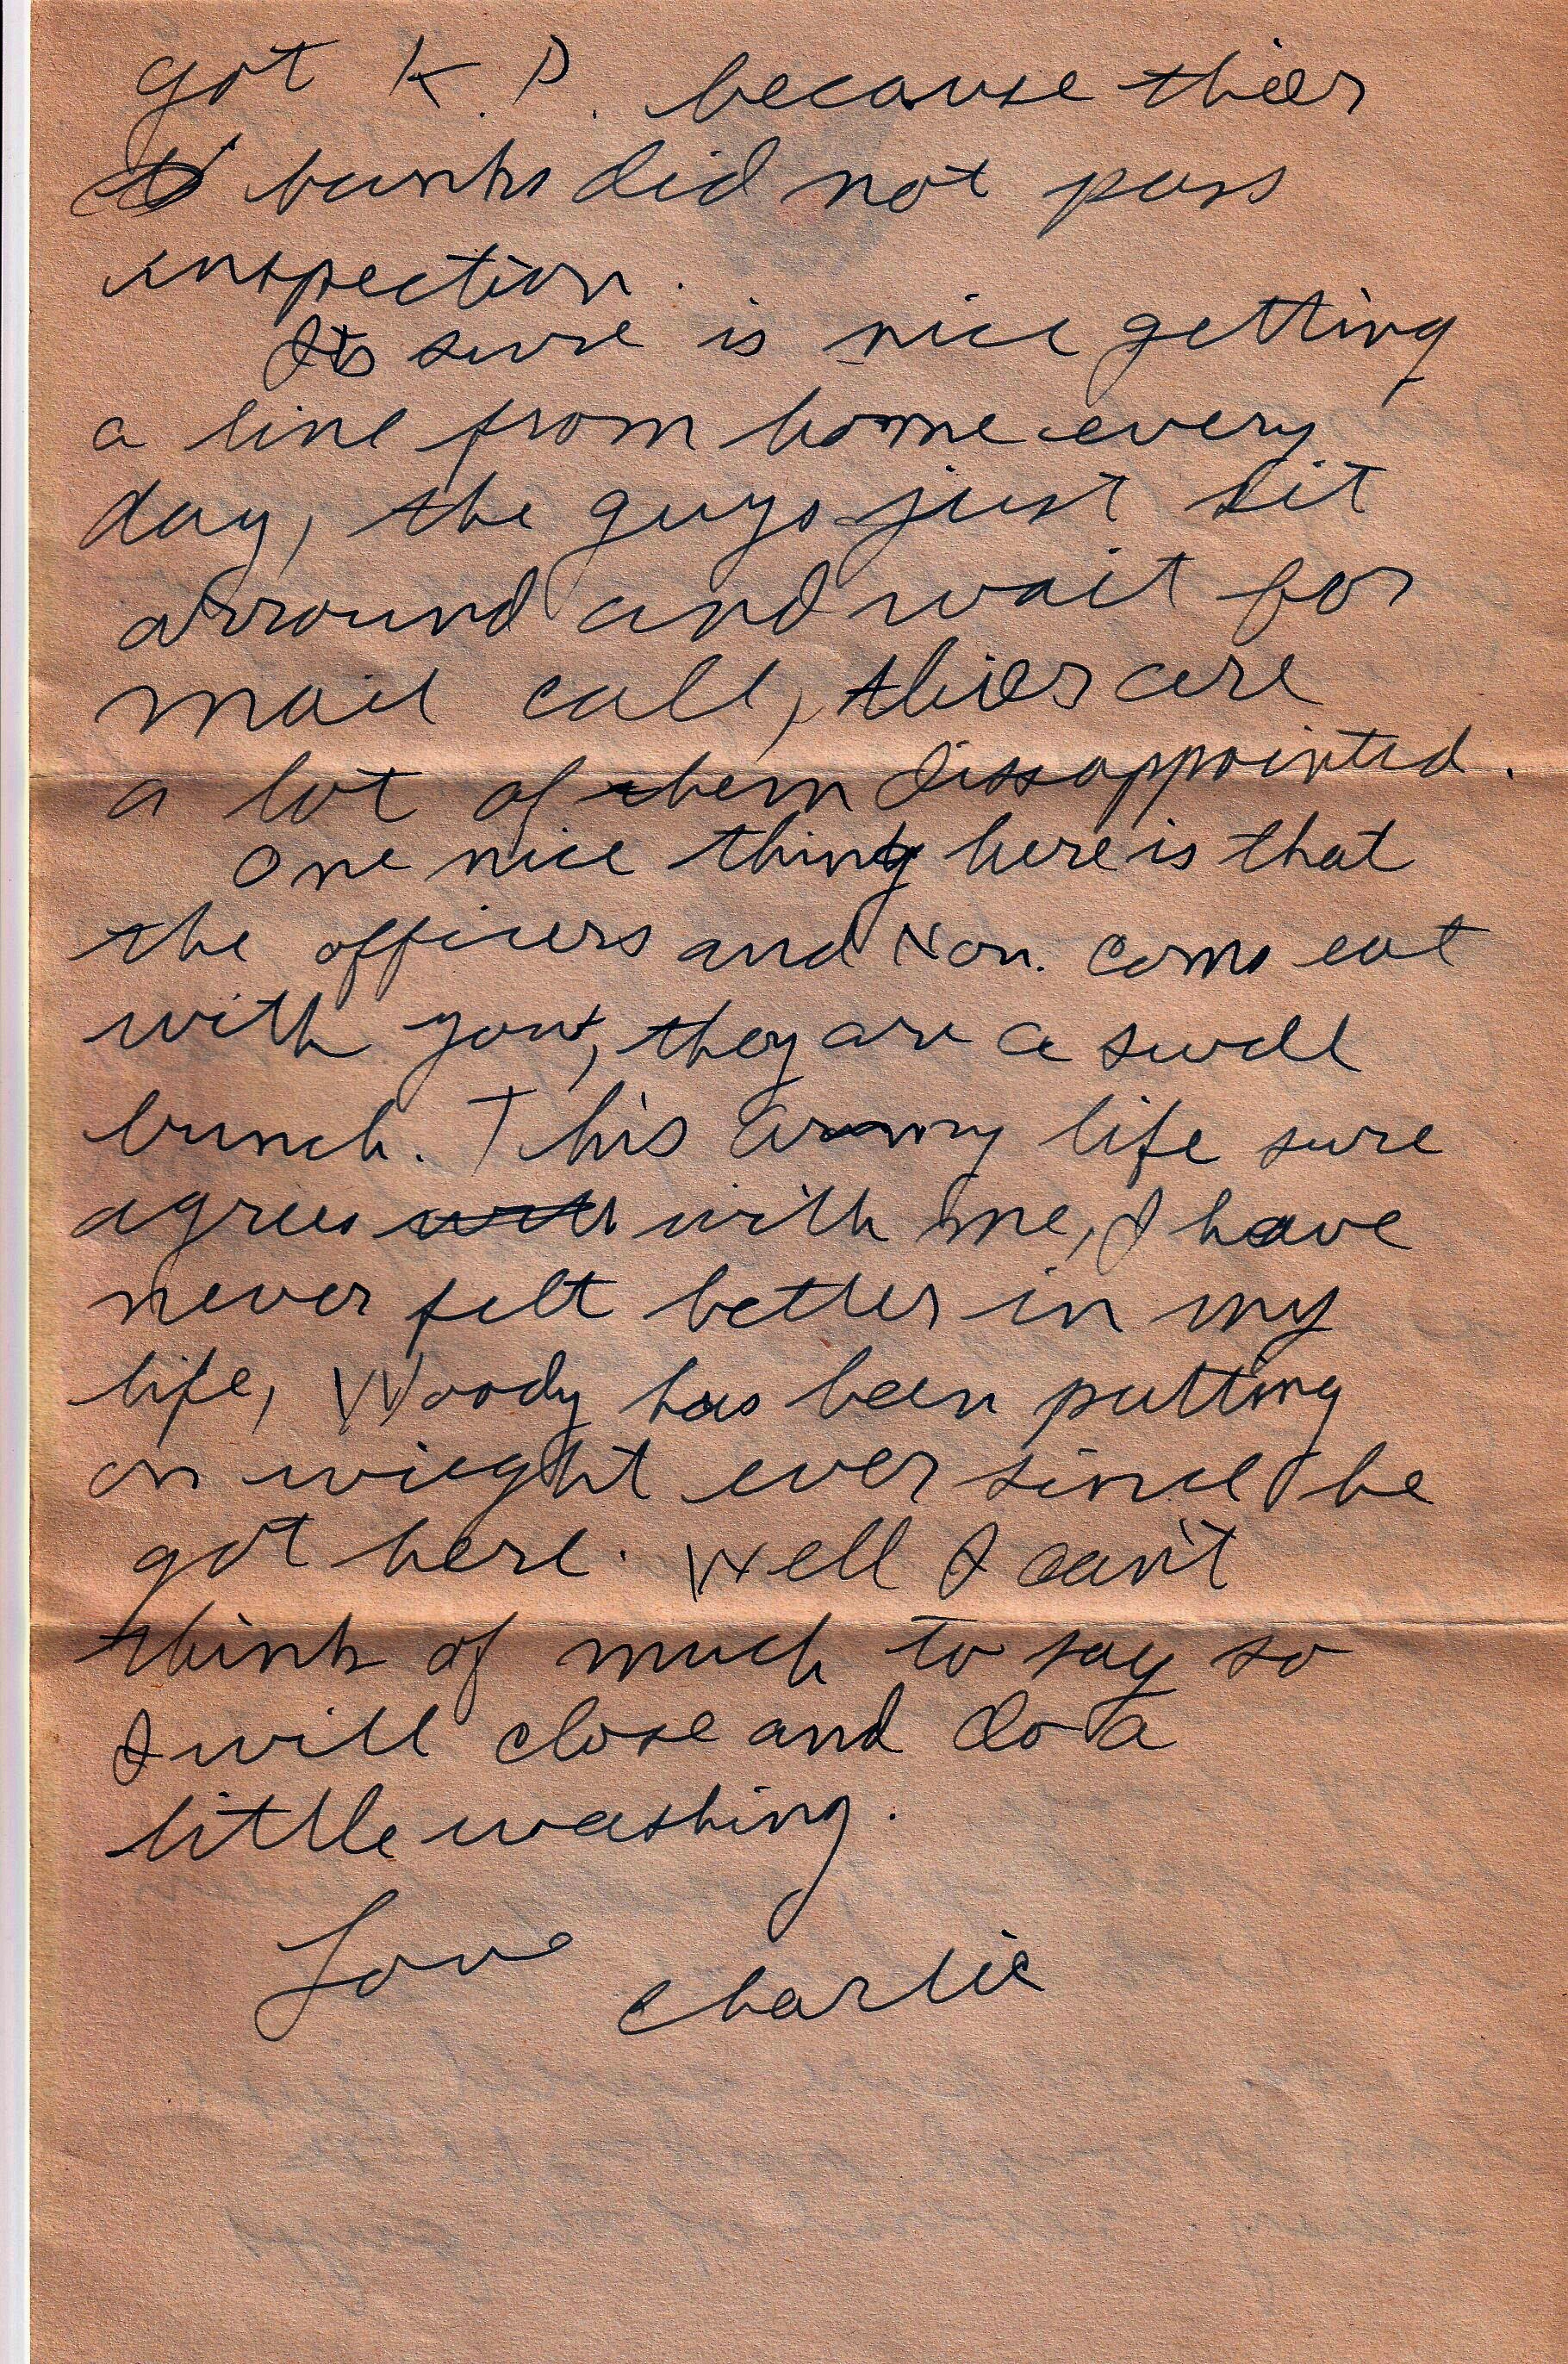 got K.P. because thier
bunks did not pass
inspection.
Its sure is nice getting
a line from home every
day, the guys just sit
arround and wait for
mail call, thier are
a lot of them dissappointed.
One nice thing here is that
the officers and Non. Coms eat
with you, they are a swell
bunch. This army life sure
agrees with with me, I have
never felt better in my
life, Woody has been putting
on wieght ever since he
got here. Well I can't
think of much to say so
I will close and do a
little washing.
Love Charlie